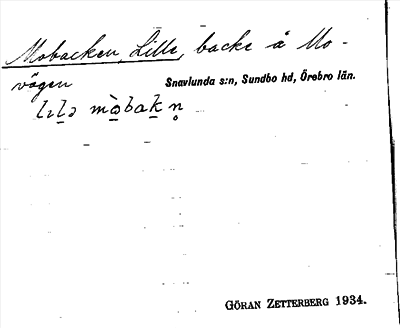 Mobacken, Lilla, backe å Mo-
vägen
Snavlunda s:n, Sundbo hd, Örebro län.
GÖRAN ZETTERBERG 1934.